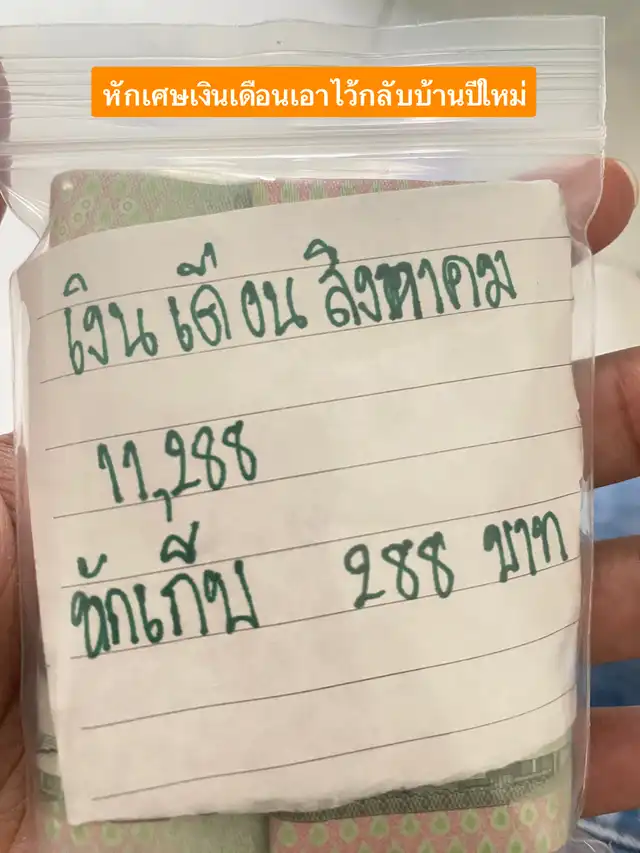 หักเศษเงินเดือนเอาไว้กลับบ้านปีใหม่
เงินเดือนสิงหาคม
11,288
หักเก็บ 288 บาท